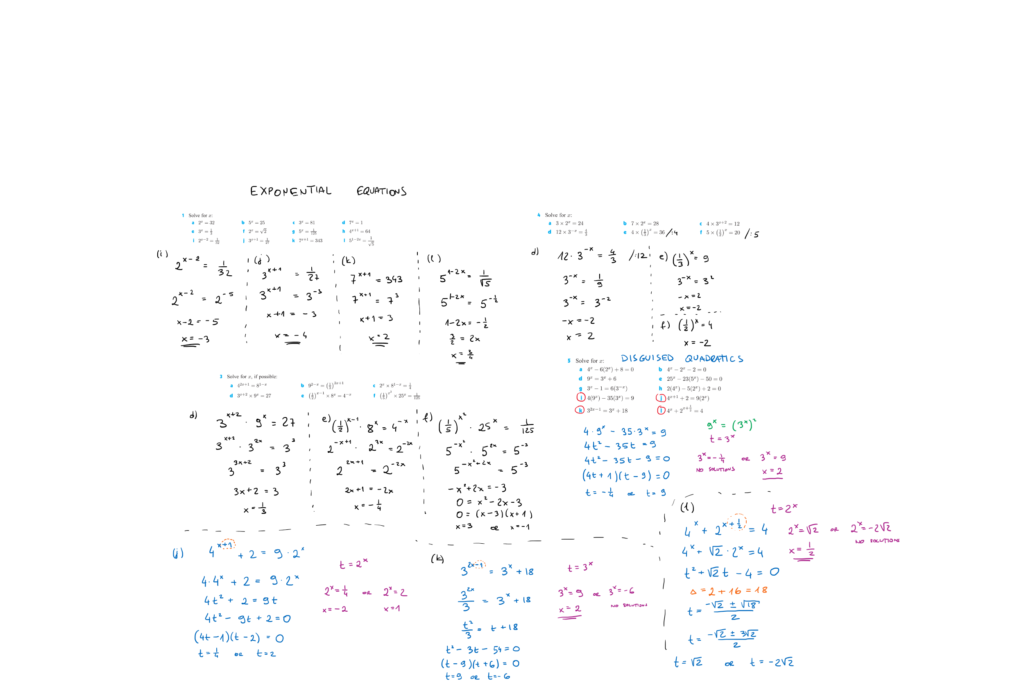 EXPONENTIAL EQUATIONS
1 Solve for x:
a 2ˣ = 32 b 5ˣ = 25 c 3ˣ = 81 d 7ˣ = 1
e 3ˣ = 1/3 f 2ˣ = √2 g 5ˣ = 1/125 h 4ˣ⁺¹ = 64
i 2ˣ⁻² = 1/32 j 3ˣ⁺¹ = 1/27 k 7ˣ⁺¹ = 343 l 5¹⁻²ˣ = 1/√5
(i)
2ˣ⁻² = 1/32
2ˣ⁻² = 2⁻⁵
x-2 = -5
x = -3
(j)
3ˣ⁺¹ = 1/27
3ˣ⁺¹ = 3⁻³
x+1 = -3
x = -4
(k)
7ˣ⁺¹ = 343
7ˣ⁺¹ = 7³
x+1 = 3
x = 2
(l)
5¹⁻²ˣ = 1/√5
5¹⁻²ˣ = 5^(-1/2)
1-2x = -1/2
3/2 = 2x
x = 3/4
4 Solve for x:
a 3 × 2ˣ = 24 b 7 × 2ˣ = 28 c 4 × 3ˣ⁺² = 12
d 12 × 3⁻ˣ = 4/3 e 4 × (1/3)ˣ = 36 /:4 f 5 × (1/2)ˣ = 20 /:5
d) 12 · 3⁻ˣ = 4/3 /:12
3⁻ˣ = 1/9
3⁻ˣ = 3⁻²
-x = -2
x = 2
e) (1/3)ˣ = 9
3⁻ˣ = 3²
-x = 2
x = -2
f) (1/2)ˣ = 4
x = -2
Solve for x, if possible:
d)
3ˣ⁺² · 9ˣ = 27
3ˣ⁺² · 3²ˣ = 3³
3³ˣ⁺² = 3³
3x+2 = 3
x = 1/3
e) (1/2)ˣ⁻¹ · 8ˣ = 4⁻ˣ
2⁻ˣ⁺¹ · 2³ˣ = 2⁻²ˣ
2²ˣ⁺¹ = 2⁻²ˣ
2x+1 = -2x
x = -1/4
f)
(1/5)^(x²) · 25ˣ = 1/125
5^(-x²) · 5²ˣ = 5⁻³
5^(-x²+2x) = 5⁻³
-x²+2x = -3
0 = x²-2x-3
0 = (x-3)(x+1)
x=3 or x=-1
Solve for x: DISGUISED QUADRATICS
a 4ˣ − 6(2ˣ) + 8 = 0 b 4ˣ − 2ˣ − 2 = 0
d 9ˣ = 3ˣ + 6 e 25ˣ − 23(5ˣ) − 50 = 0
g 3ˣ − 1 = 6(3⁻ˣ) h 2(4ˣ) − 5(2ˣ) + 2 = 0
i 4(9ˣ) − 35(3ˣ) = 9 j 4ˣ⁺¹ + 2 = 9(2ˣ)
k 3²ˣ⁻¹ = 3ˣ + 18 l 4ˣ + 2^(x+1/2) = 4
4 · 9ˣ - 35 · 3ˣ = 9
4t² - 35t = 9
4t² - 35t - 9 = 0
(4t+1)(t-9) = 0
t = -1/4 or t = 9
9ˣ = (3ˣ)²
t = 3ˣ
3ˣ = -1/4 or 3ˣ = 9
NO SOLUTIONS x = 2
(j)
4ˣ⁺¹ + 2 = 9 · 2ˣ
4 · 4ˣ + 2 = 9 · 2ˣ
4t² + 2 = 9t
4t² - 9t + 2 = 0
(4t-1)(t-2) = 0
t = 1/4 or t = 2
t = 2ˣ
2ˣ = 1/4 or 2ˣ = 2
x = -2 x = 1
(k)
3²ˣ⁻¹ = 3ˣ + 18
3²ˣ/3 = 3ˣ + 18
t²/3 = t + 18
t² - 3t - 54 = 0
(t-9)(t+6) = 0
t=9 or t=-6
t = 3ˣ
3ˣ = 9 or 3ˣ = -6
x = 2 NO SOLUTIONS
(l)
4ˣ + 2^(x+1/2) = 4
4ˣ + √2 · 2ˣ = 4
t² + √2 t - 4 = 0
Δ = 2 + 16 = 18
t = (-√2 ± √18)/2
t = (-√2 ± 3√2)/2
t = √2 or t = -2√2
t = 2ˣ
2ˣ = √2 or 2ˣ = -2√2
x = 1/2 NO SOLUTIONS